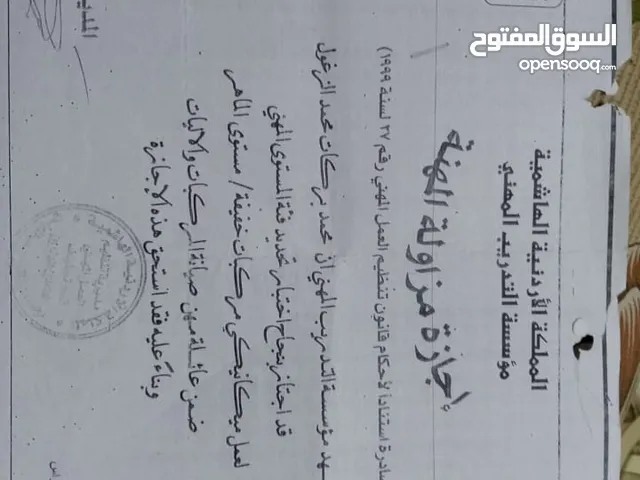 السوق المفتوح
opensooq.com
المملكة الأردنية الهاشمية
مؤسسة التدريب المهني
إجازة مزاولة المهنة
صادرة استناداً لأحكام قانون تنظيم العمل المهني رقم ٢٧ لسنة ١٩٩٩)
مؤسسة التدريب المهني ان محمد بركات محمد الزغول
قد اجتاز بنجاح اختبار تحديد فئة المستوى المهني
لعمل ميكانيكي مركبات خفيفة / مستوى الماهر
ضمن عائلة مهن صيانة المركبات والآليات
وبناءً عليه فقد استحق هذه الإجازة